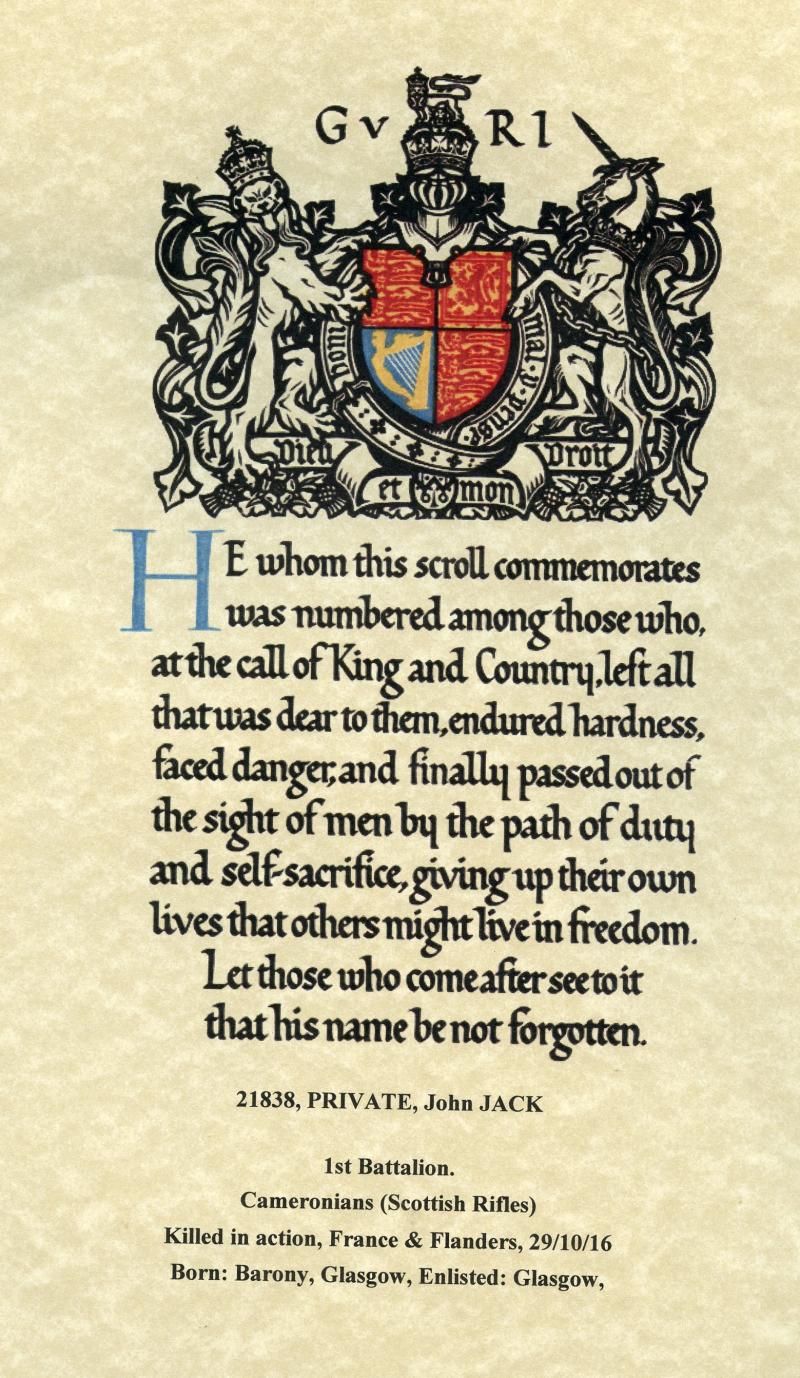 G V R I
mal·y·pense
Dieu Droit
et mon
HE whom this scroll commemorates
was numbered among those who,
at the call of King and Country, left all
that was dear to them, endured hardness,
faced danger, and finally passed out of
the sight of men by the path of duty
and self-sacrifice, giving up their own
lives that others might live in freedom.
Let those who come after see to it
that his name be not forgotten.
21838, PRIVATE, John JACK
1st Battalion.
Cameronians (Scottish Rifles)
Killed in action, France & Flanders, 29/10/16
Born: Barony, Glasgow, Enlisted: Glasgow,